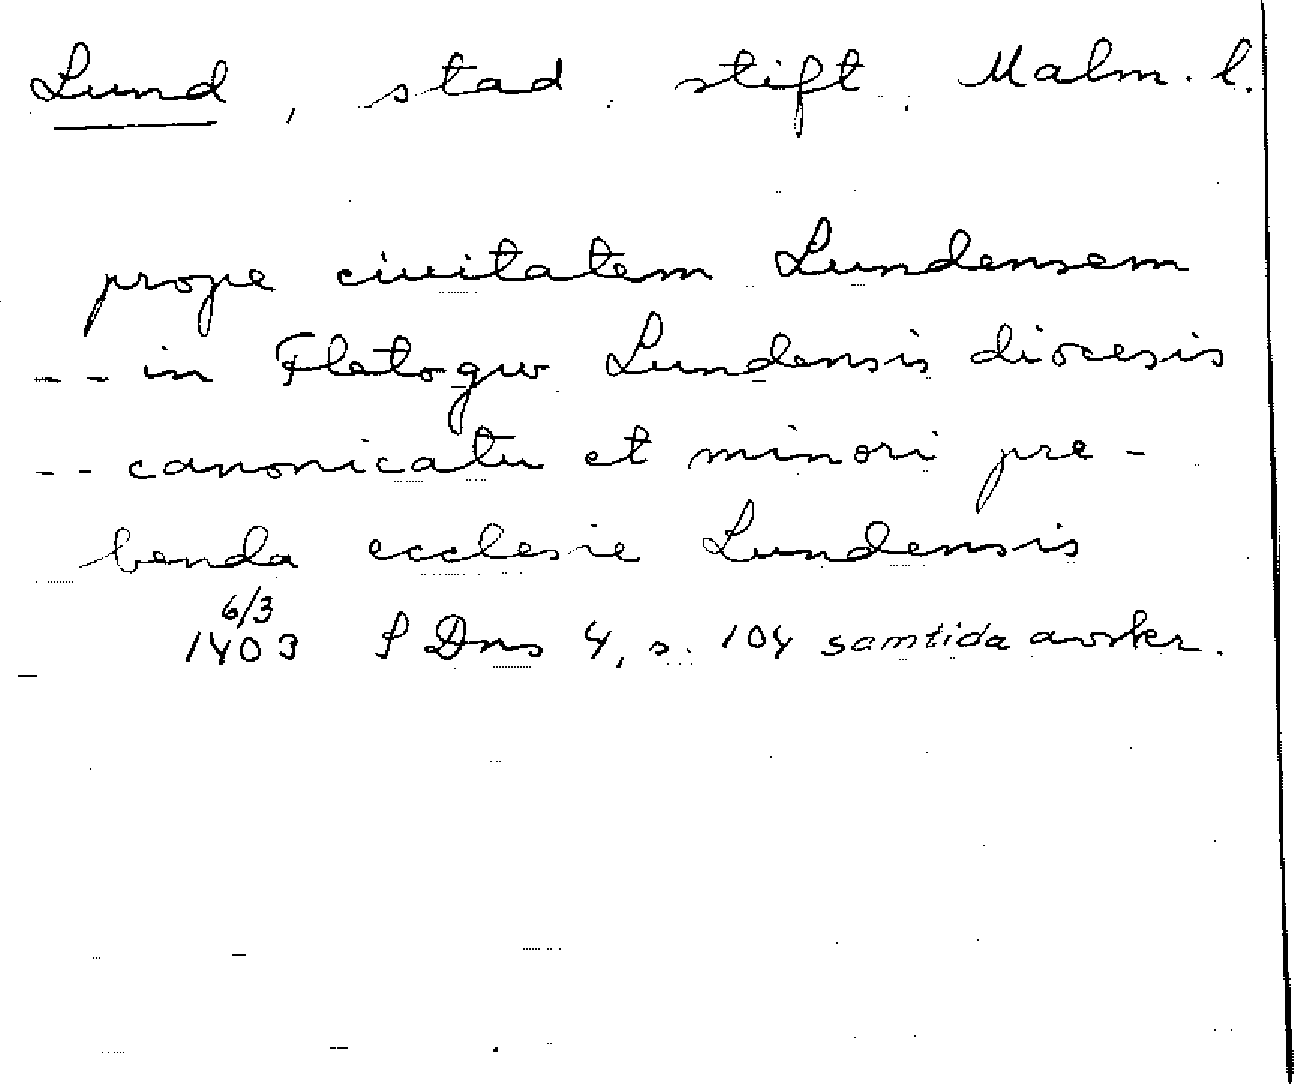 Lund, stad, stift, Malm. l.
prope ciuitatem Lundensem
-- in Fletogw Lundensis diocesis
-- canonicatu et minori pre-
benda ecclesie Lundensis
6/3
1403 P Dns 4, s. 104 samtida avskr.